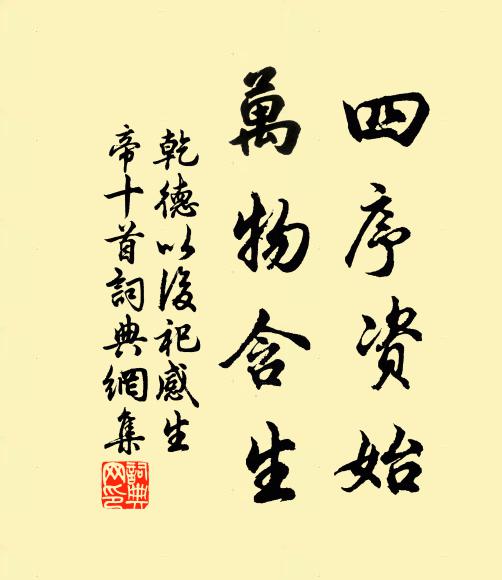 四序資始
萬物含生
乾德以後祀感生
帝十首詞典網集
詞典網印